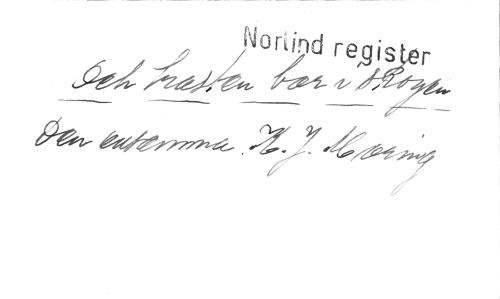 Norlind register
Och hästen bær i skogen
Den ensamma. K. J. Mæring